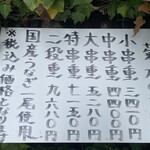 小串重
中串重
大串重 五二八〇円
特串重 七一五〇円
二段重 九六八〇円
国産うなぎ一尾使用
※税込み価格となります